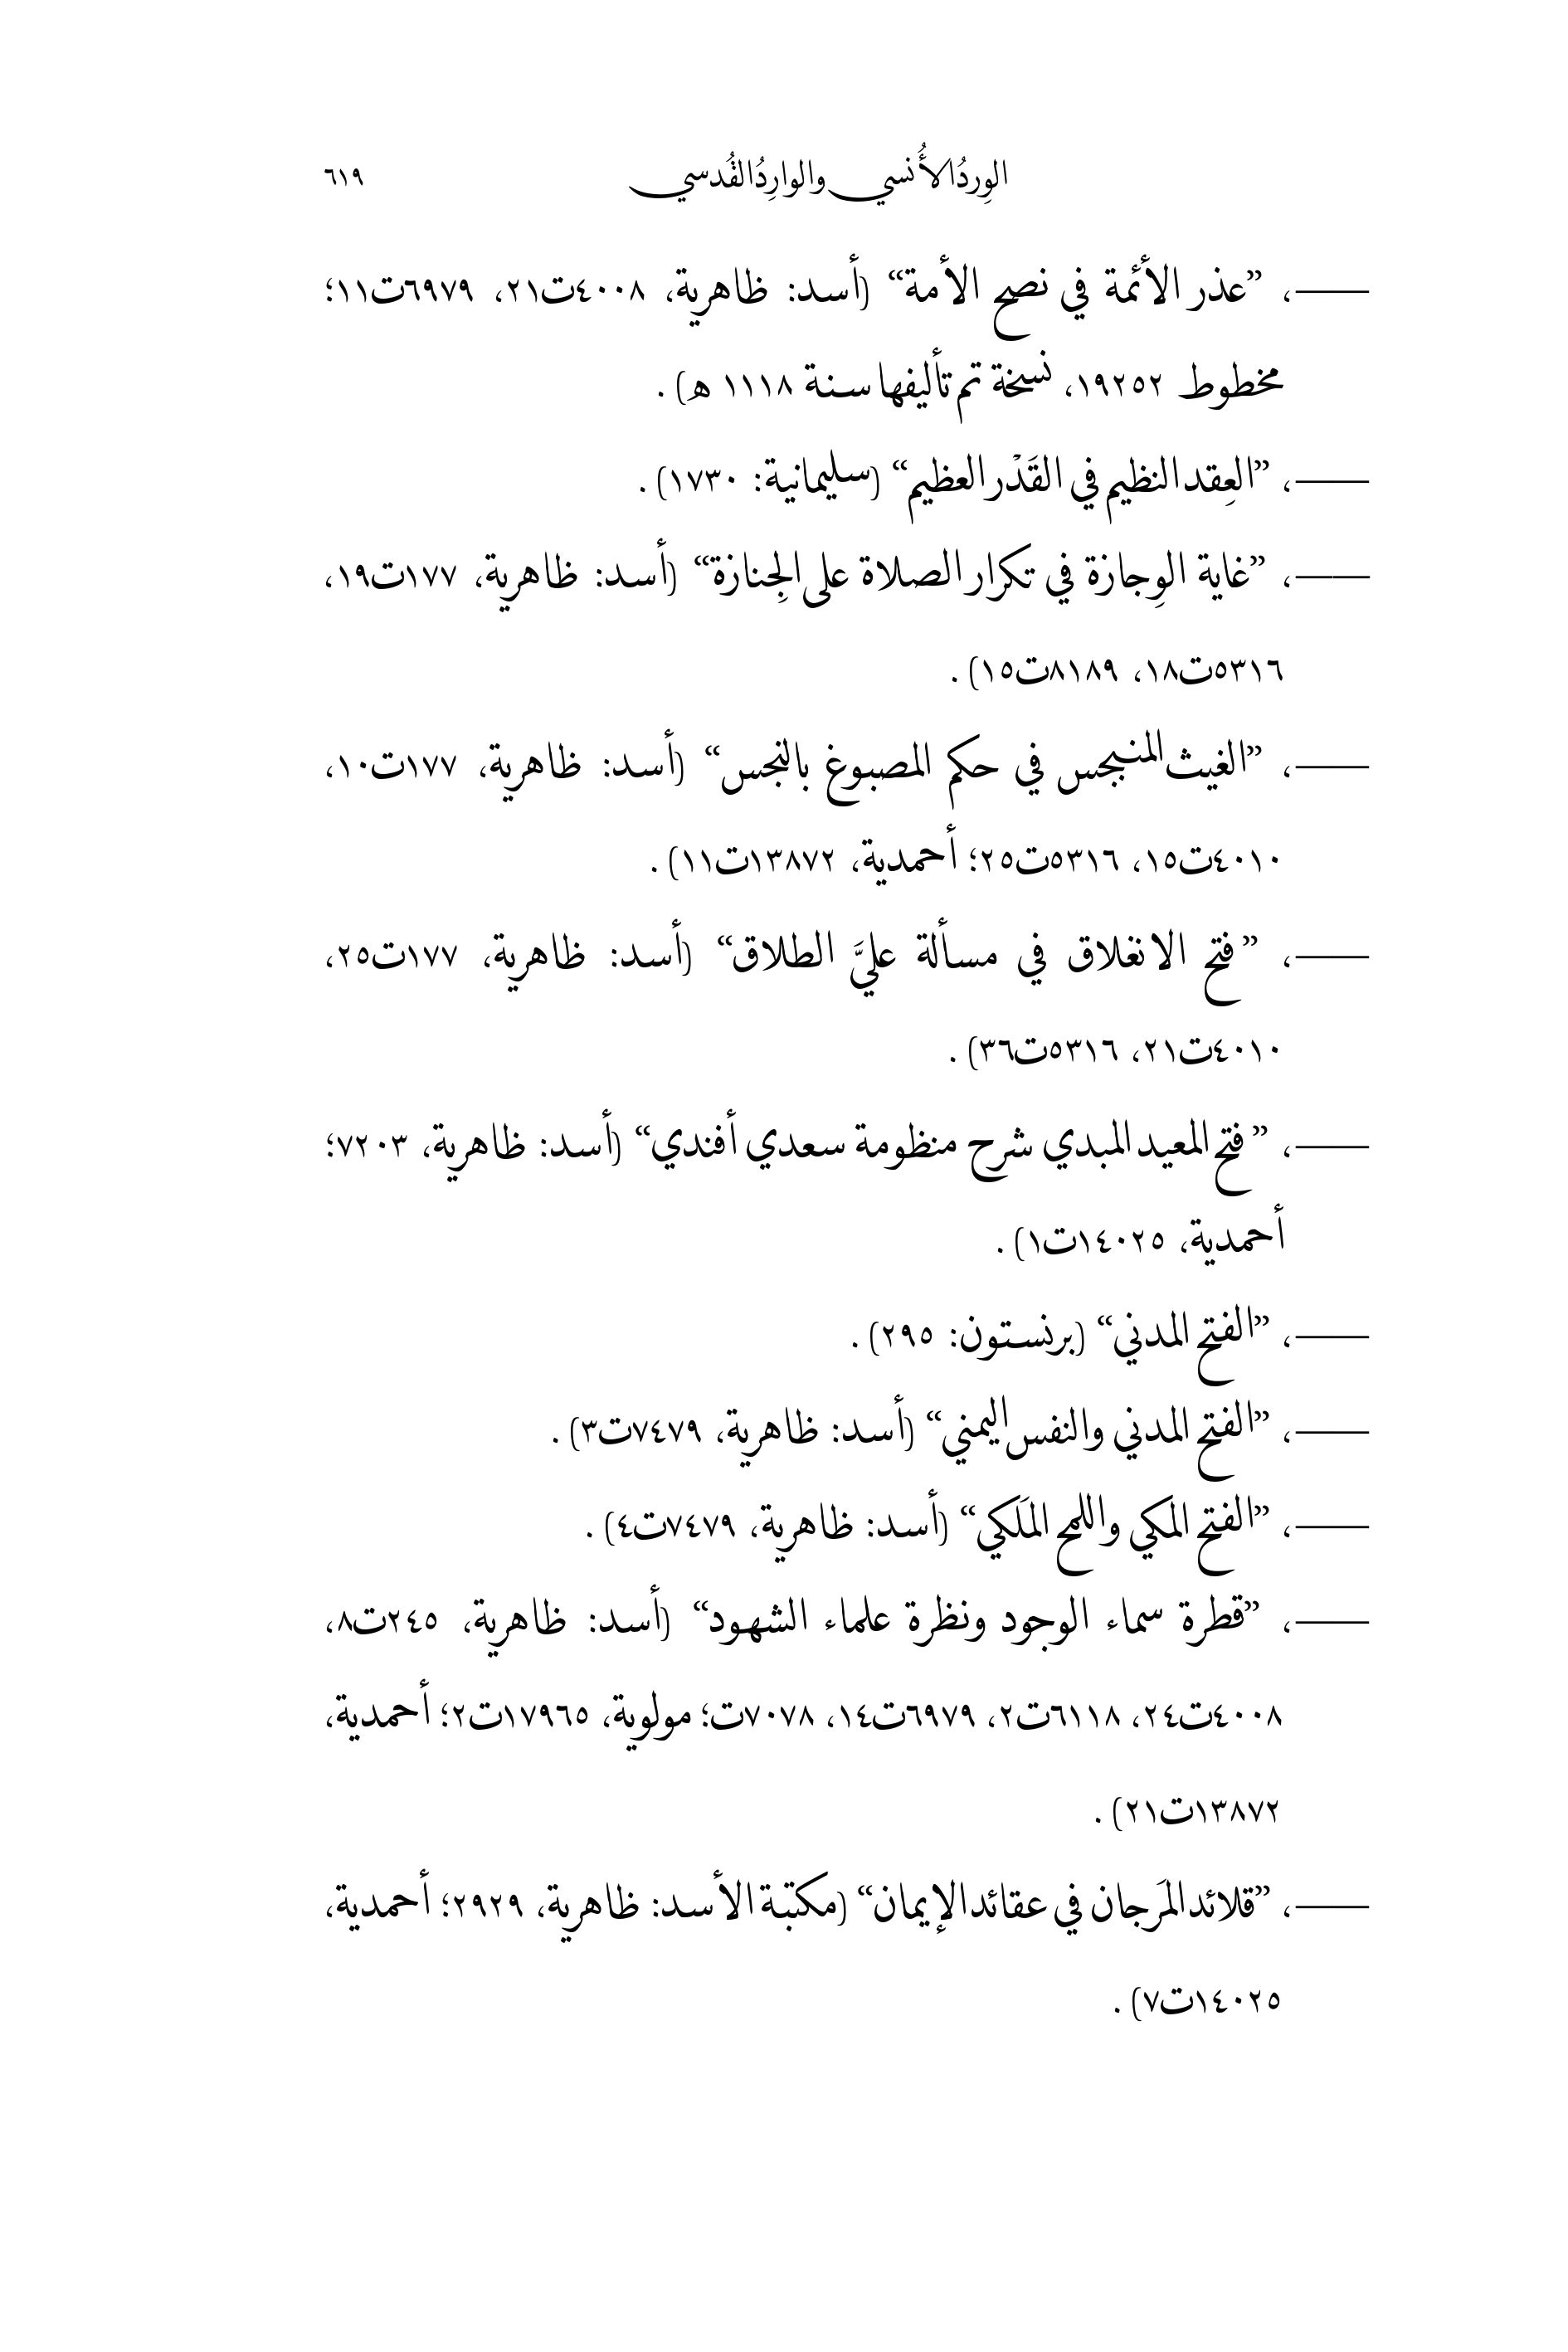 الوِردُ الأُنسي والوارِدُ القُدسي ٦١٩
———، ”عذر الأئمة في نصح الأمة“ (أسد: ظاهرية، ٤٠٠٨ت٢١، ٦٩٧٩ت١١؛
مخطوط ١٩٢٥٢، نسخة تم تأليفها سنة ١١١٨ ه).
———، ”العِقد النظيم في القَدْر العظيم“ (سليمانية: ١٧٣٠).
———، ”غاية الوِجازة في تكرار الصلاة على الجِنازة“ (أسد: ظاهرية، ١٧٧ت١٩،
٥٣١٦ت١٨، ٨١٨٩ت١٥).
———، ”الغيث المنبجس في حكم المصبوغ بالنجس“ (أسد: ظاهرية، ١٧٧ت١٠،
٤٠١٠ت١٥، ٥٣١٦ت٢٥؛ أحمدية، ١٣٨٧٢ت١١).
———، ”فتح الانغلاق في مسألة عليَّ الطلاق“ (أسد: ظاهرية، ١٧٧ت٢٥،
٤٠١٠ت٢١، ٥٣١٦ت٣٦).
———، ”فتح المعيد المبدي شرح منظومة سعدي أفندي“ (أسد: ظاهرية، ٧٢٠٣؛
أحمدية، ١٤٠٢٥ت١).
———، ”الفتح المدني“ (برنستون: ٢٩٥).
———، ”الفتح المدني والنفس اليمني“ (أسد: ظاهرية، ٧٤٧٩ت٣).
———، ”الفتح المكي واللمح المَلَكي“ (أسد: ظاهرية، ٧٤٧٩ت٤).
———، ”قطرة سماء الوجود ونظرة علماء الشهود“ (أسد: ظاهرية، ٢٤٥ت٨،
٤٠٠٨ت٢٤، ٦١١٨ت٢، ٦٩٧٩ت١٤، ٧٠٧٨ت؛ مولوية، ١٧٩٦٥ت٢؛ أحمدية،
١٣٨٧٢ت٢١).
———، ”قلائد المَرجان في عقائد الإيمان“ (مكتبة الأسد: ظاهرية، ٢٩٢٩؛ أحمدية،
١٤٠٢٥ت٧).